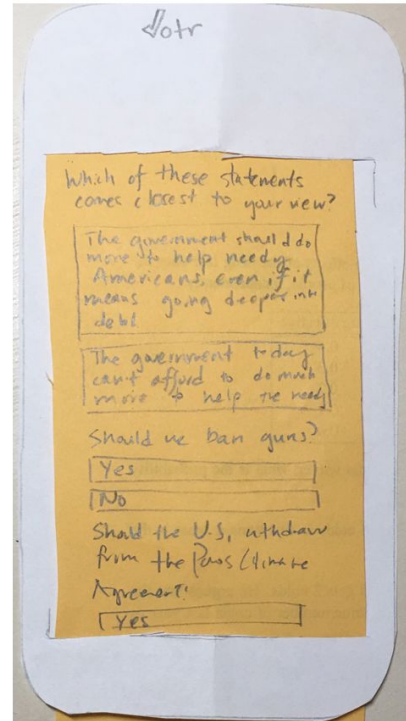 Votr
Which of these statements
comes closest to your view?
The government should do
more to help needy
Americans, even if it
means going deeper into
debt.
The government today
can't afford to do much
more to help the needy
Should we ban guns?
Yes
No
Should the U.S. withdraw
from the Paris Climate
Agreement?
Yes